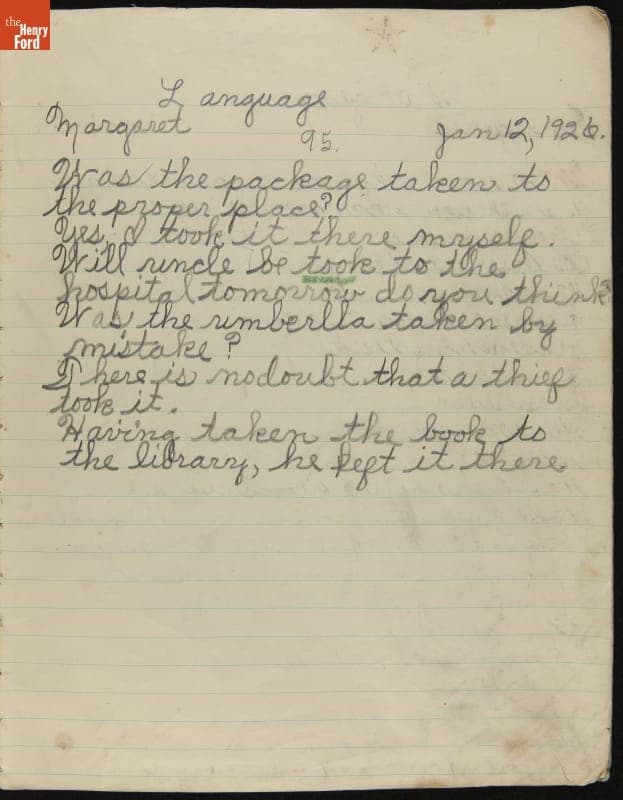 the
Henry
Ford
Language
Margaret 95. Jan 12, 1926.
Was the package taken to
the proper place?
Yes, I took it there myself.
Will uncle be took to the
hospital tomorrow do you think?
Was the umberlla taken by
mistake?
There is no doubt that a thief
took it.
Having taken the book to
the library, he left it there.